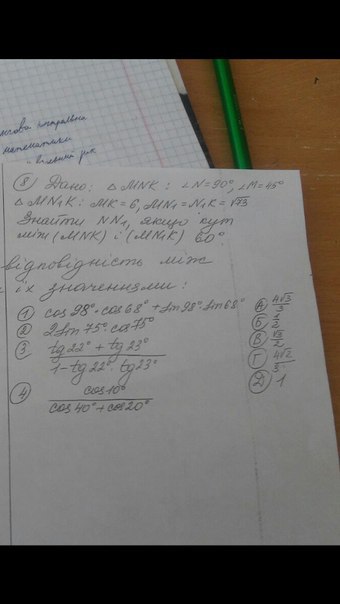 математики
⑧ Дано: △ MNK: ∠N=90°, ∠M=45°
△ MN₁K: MK=6, MN₁=N₁K=√73
Знайти NN₁, якщо кут
між (MNK) і (MN₁K) 60°.
відповідність між
їх значеннями:
① cos98°·cos68°+sin98°·sin68°
② 2sin75°·cos75°
③ (tg22°+tg23°)/(1-tg22°·tg23°)
④ cos10°/(cos40°+cos20°)
Б 1/2
В √3/2
Д 1